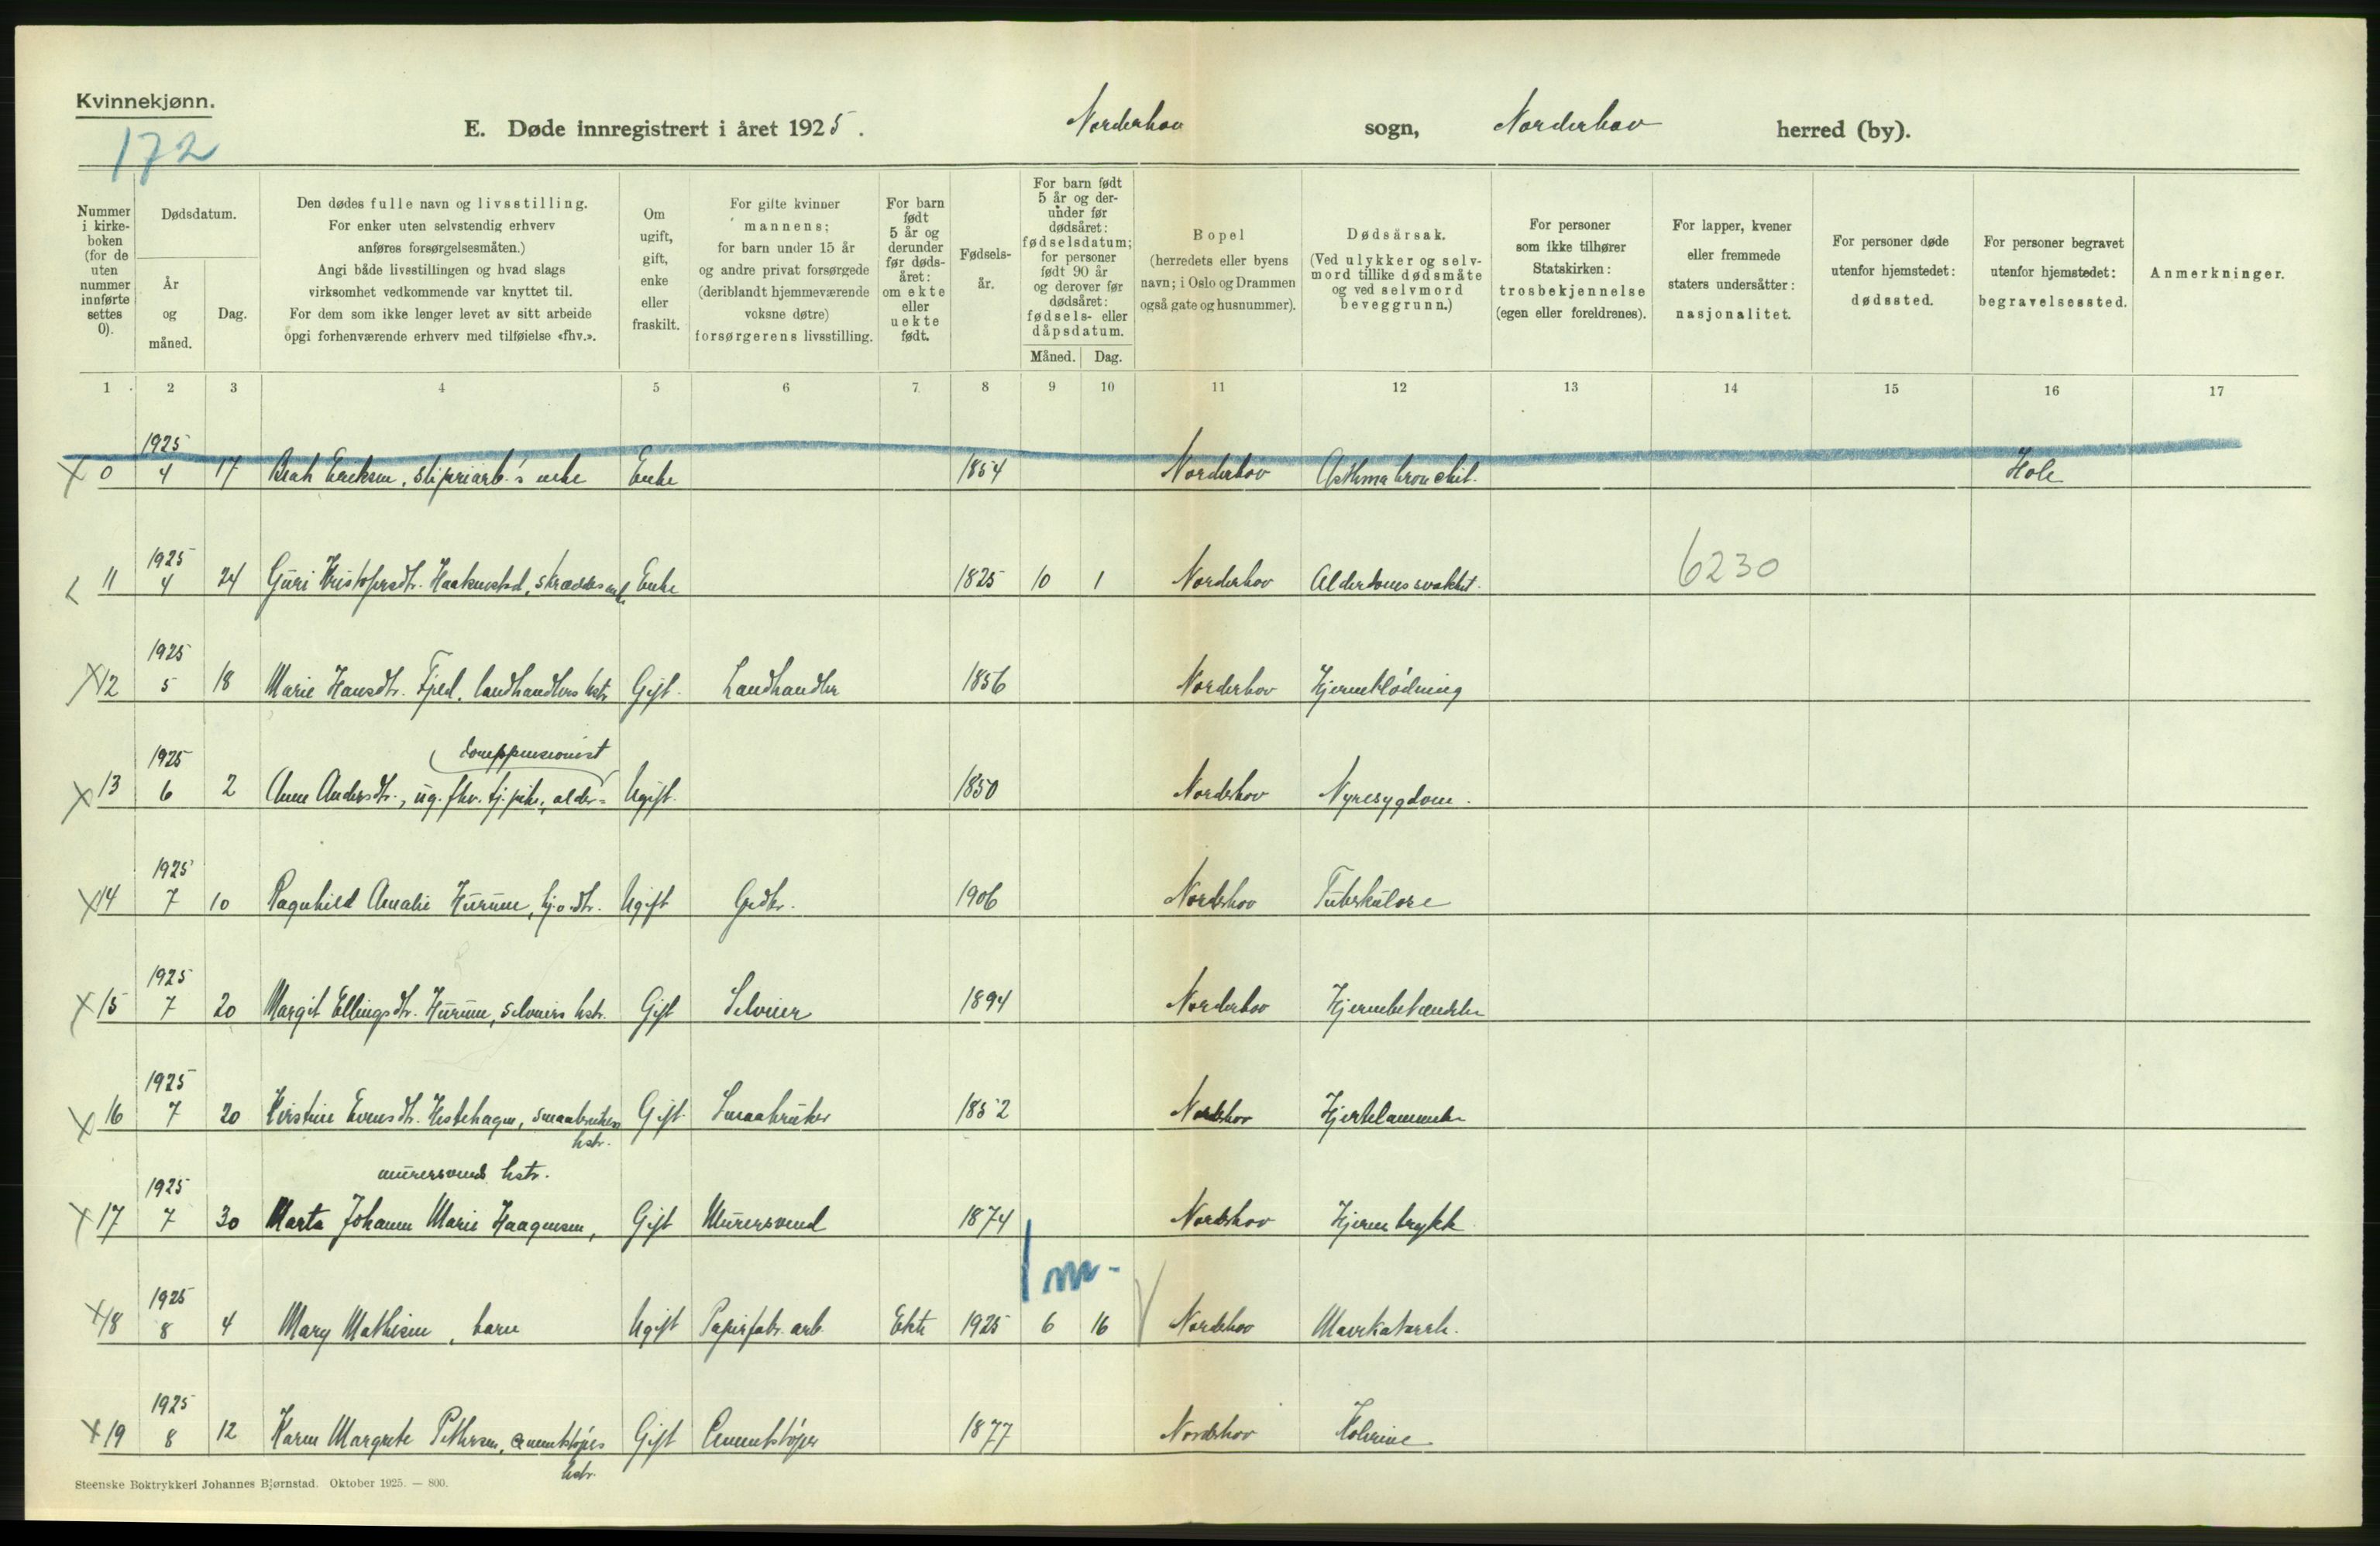 Kvinnekjønn.
172
E. Døde innregistrert i året 1925. Norderhov sogn, Norderhov herred (by).
Nummer i kirke-boken (for de uten nummer innførte settes 0).
Dødsdatum.
År og måned.
Dag.
Den dødes fulle navn og livsstilling.
For enker uten selvstendig erhverv
anføres forsørgelsesmåten.)
Angi både livsstillingen og hvad slags
virksomhet vedkommende var knyttet til.
For dem som ikke lenger levet av sitt arbeide
opgi forhenværende erhverv med tilføielse «fhv.».
Om ugift, gift, enke eller fraskilt.
For gifte kvinner
mannens;
for barn under 15 år
og andre privat forsørgede
(deriblandt hjemmeværende
voksne døtre)
forsørgerens livsstilling.
For barn født 5 år og derunder før døds-året: om ekte eller uekte født.
Fødsels-år.
For barn født 5 år og der-under før dødsåret: fødselsdatum; for personer født 90 år og derover før dødsåret: fødsels- eller dåpsdatum.
Måned. Dag.
Bopel
(herredets eller byens
navn; i Oslo og Drammen
også gate og husnummer).
Dødsårsak.
(Ved ulykker og selv-
mord tillike dødsmåte
og ved selvmord
beveggrunn.)
For personer
som ikke tilhører
Statskirken:
trosbekjennelse
(egen eller foreldrenes).
For lapper, kvener
eller fremmede
staters undersåtter:
nasjonalitet.
For personer døde
utenfor hjemstedet:
dødssted.
For personer begravet
utenfor hjemstedet:
begravelsessted.
Anmerkninger.
1 2 3 4 5 6 7 8 9 10 11 12 13 14 15 16 17
1925
x 0 4 17 Eriksen, enke Enke 1854 Norderhov Asthma bronchit. Hole
1925
11 4 24 Guri Kristofersdtr. Haakenstad, Enke 1825 10 1 Norderhov Alderdomssvakhet. 6230
1925
x 12 5 18 Marie Hansdtr. Fjeld, landhandlers hstr. Gift. Landhandler 1856 Norderhov Hjerneblødning
1925 domspensionist
x 13 6 2 Anne Andersdtr., ug. fhv. tj.pike, alder= Ugift. 1850 Norderhov Nyresygdom.
1925
x 14 7 10 Ragnhild Amalie Hurum, Ugift Grdbr. 1906 Norderhov Tuberkulose
1925
x 15 7 20 Margit Ellingsdtr. Hurum, selveiers hstr. Gift Selveier 1894 Norderhov Hjernebetændelse
1925
x 16 7 20 Kirstine Evensdtr. Hestehagen, smaabrukers Gift Smaabruker 1852 Norderhov Hjertelammelse
hstr.
1925 murersvends hstr.
x 17 7 30 Marta Johanne Marie Haagensen, Gift Murersvend 1874 Norderhov Hjernetrykk
1 m-
1925
x 18 8 4 Mary Mathisen, barn Ugift Papirfabr. arb. Ekte 1925 6 16 Norderhov Mavekatarrh.
1925
x 19 8 12 Karen Margrete Pettersen, cementstøpers Gift Cementstøper 1877 Norderhov
hstr.
Steenske Boktrykkeri Johannes Bjørnstad. Oktober 1925. — 800.